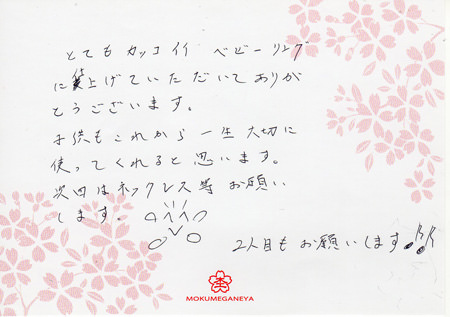 とてもカッコイイ ベビーリング
に仕上げていただいてありが
とうございます。
子供もこれから一生大切に
使ってくれると思います。
次回はネックレス等お願い
します。
2人目もお願いします!!
MOKUMEGANEYA